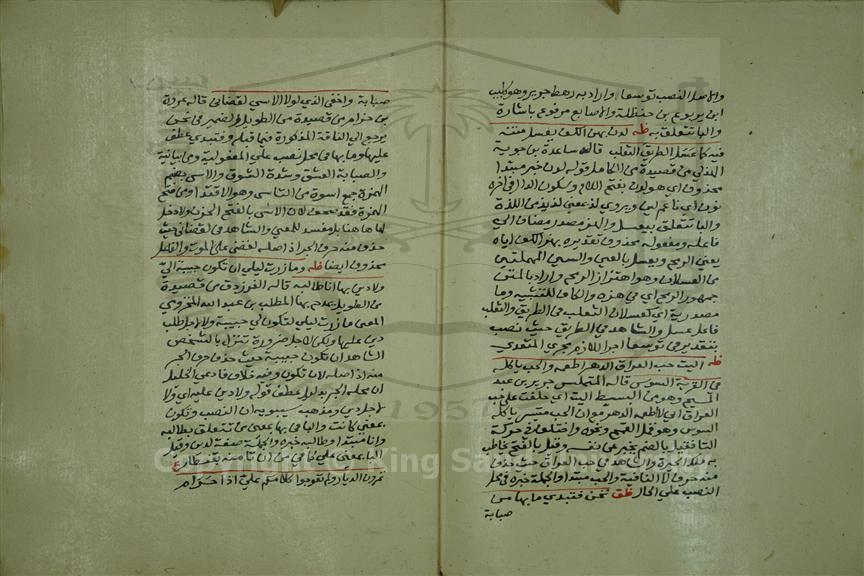 والاصل النصب توسعا واراد به رهط جرير وهو كليب
ابن يربوع بن حنظلة والاصابع مرفوع باشارة
والباتتعلق به ظه لدن بهز الكف يعسل متنه
فيه كما عسل الطريق الثعلب قاله ساعدة بن جوية
الهذلي من قصيدة من الكامل قوله لدن خبر مبتدا
محذوف اي هو لدن بفتح اللام وسكون الدال في اخره
نون اي ناعم لين ويروي لذ بمعني لذيذ من اللذة
والباتتعلق بيعسل والهز مصدر مضاف الي
فاعله ومفعوله محذوف تقديره بهز الكف اياه
يعني الرمح ويعسل بالعين والسين المهملتين
من العسلان وهو اهتزاز الرمح واراد بالمتن
جمهور الرمح اي في هزه والكاف للتشبيه وما
مصدرية اي كعسلان الثعلب في الطريق والثعلب
فاعل عسل والشاهد في الطريق حيث نصب
بتقدير في توسعا اجرا للازم مجري المتعدي
ظه اليت حب العراق الدهر اطعمه والحب ياكله
في القرية السوس قاله المتلمس جرير بن عبد
المسيح وهو من البسيط اليت اي حلفت علي حب
العراق اي لا اطعمه الدهر مع ان الحب متيسر ياكله
السوس وهو قمل القمح ونحوه واختلف في حركة
التا فقيل بالضم يخبر عن نفسه وقيل بالفتح يخاطب
به ملك الحيرة والشاهد في حب العراق حيث حذف
منه حرف لا النافية والحب مبتدا والجملة خبره في محل
النصب علي الحال ظق تحن فتبدي ما بها من
صبابة
صبابة واخفي الذي لولا الاسي لقضاني قاله عروة
بن حزام من قصيدة من الطويل والضمير في تحن
يرجع الي الناقة المذكورة فيما قبله وفتبدي عطف
عليه وما بها في محل نصب علي المفعولية ومن بيانية
والصبابة العشق وشدة الشوق والاسي بضم
الهمزة جمع اسوة من التاسي وهو الاقتدا ومن فتح
الهمزة فقد صحف لان الاسي بالفتح الحزن ولا دخل
لها هاهنا بل مفسد للمعني والشاهد في لقضاني حيث
حذف منه حرف الجر اذ اصله لقضي علي الموت والفاعل
محذوف ايضا ظه وما زرت ليلي ان تكون حبيبة الي
ولا دين بها انا طالبه قاله الفرزدق من قصيدة
من الطويل يمدح بها المطلب بن عبد الله المخزومي
المعني ما زرت ليلي لتكون لي حبيبة ولا لاجل طلب
دين عليها ولكن لاجل ضرورة تنزل بالشخص
الشاهد ان تكون حبيبة حيث حذف حرف الجر
منه اذ اصله لان تكون وفيه خلاف فادعي الخليل
ان محله الجر بدليل عطف قوله ولا دين عليه اي ولا
لاجل دين ومذهب سيبويه ان النصب وتكون
بمعني كانت والبا في بها بمعني من تتعلق بطالبه
وانا مبتدا وطالبه خبره والجملة صفة لدين وقيل
البا بمعني علي كما في من ان تامنه بقنطار ع
تمرون الديار ولم تعوجوا كلامكم علي اذا حرام